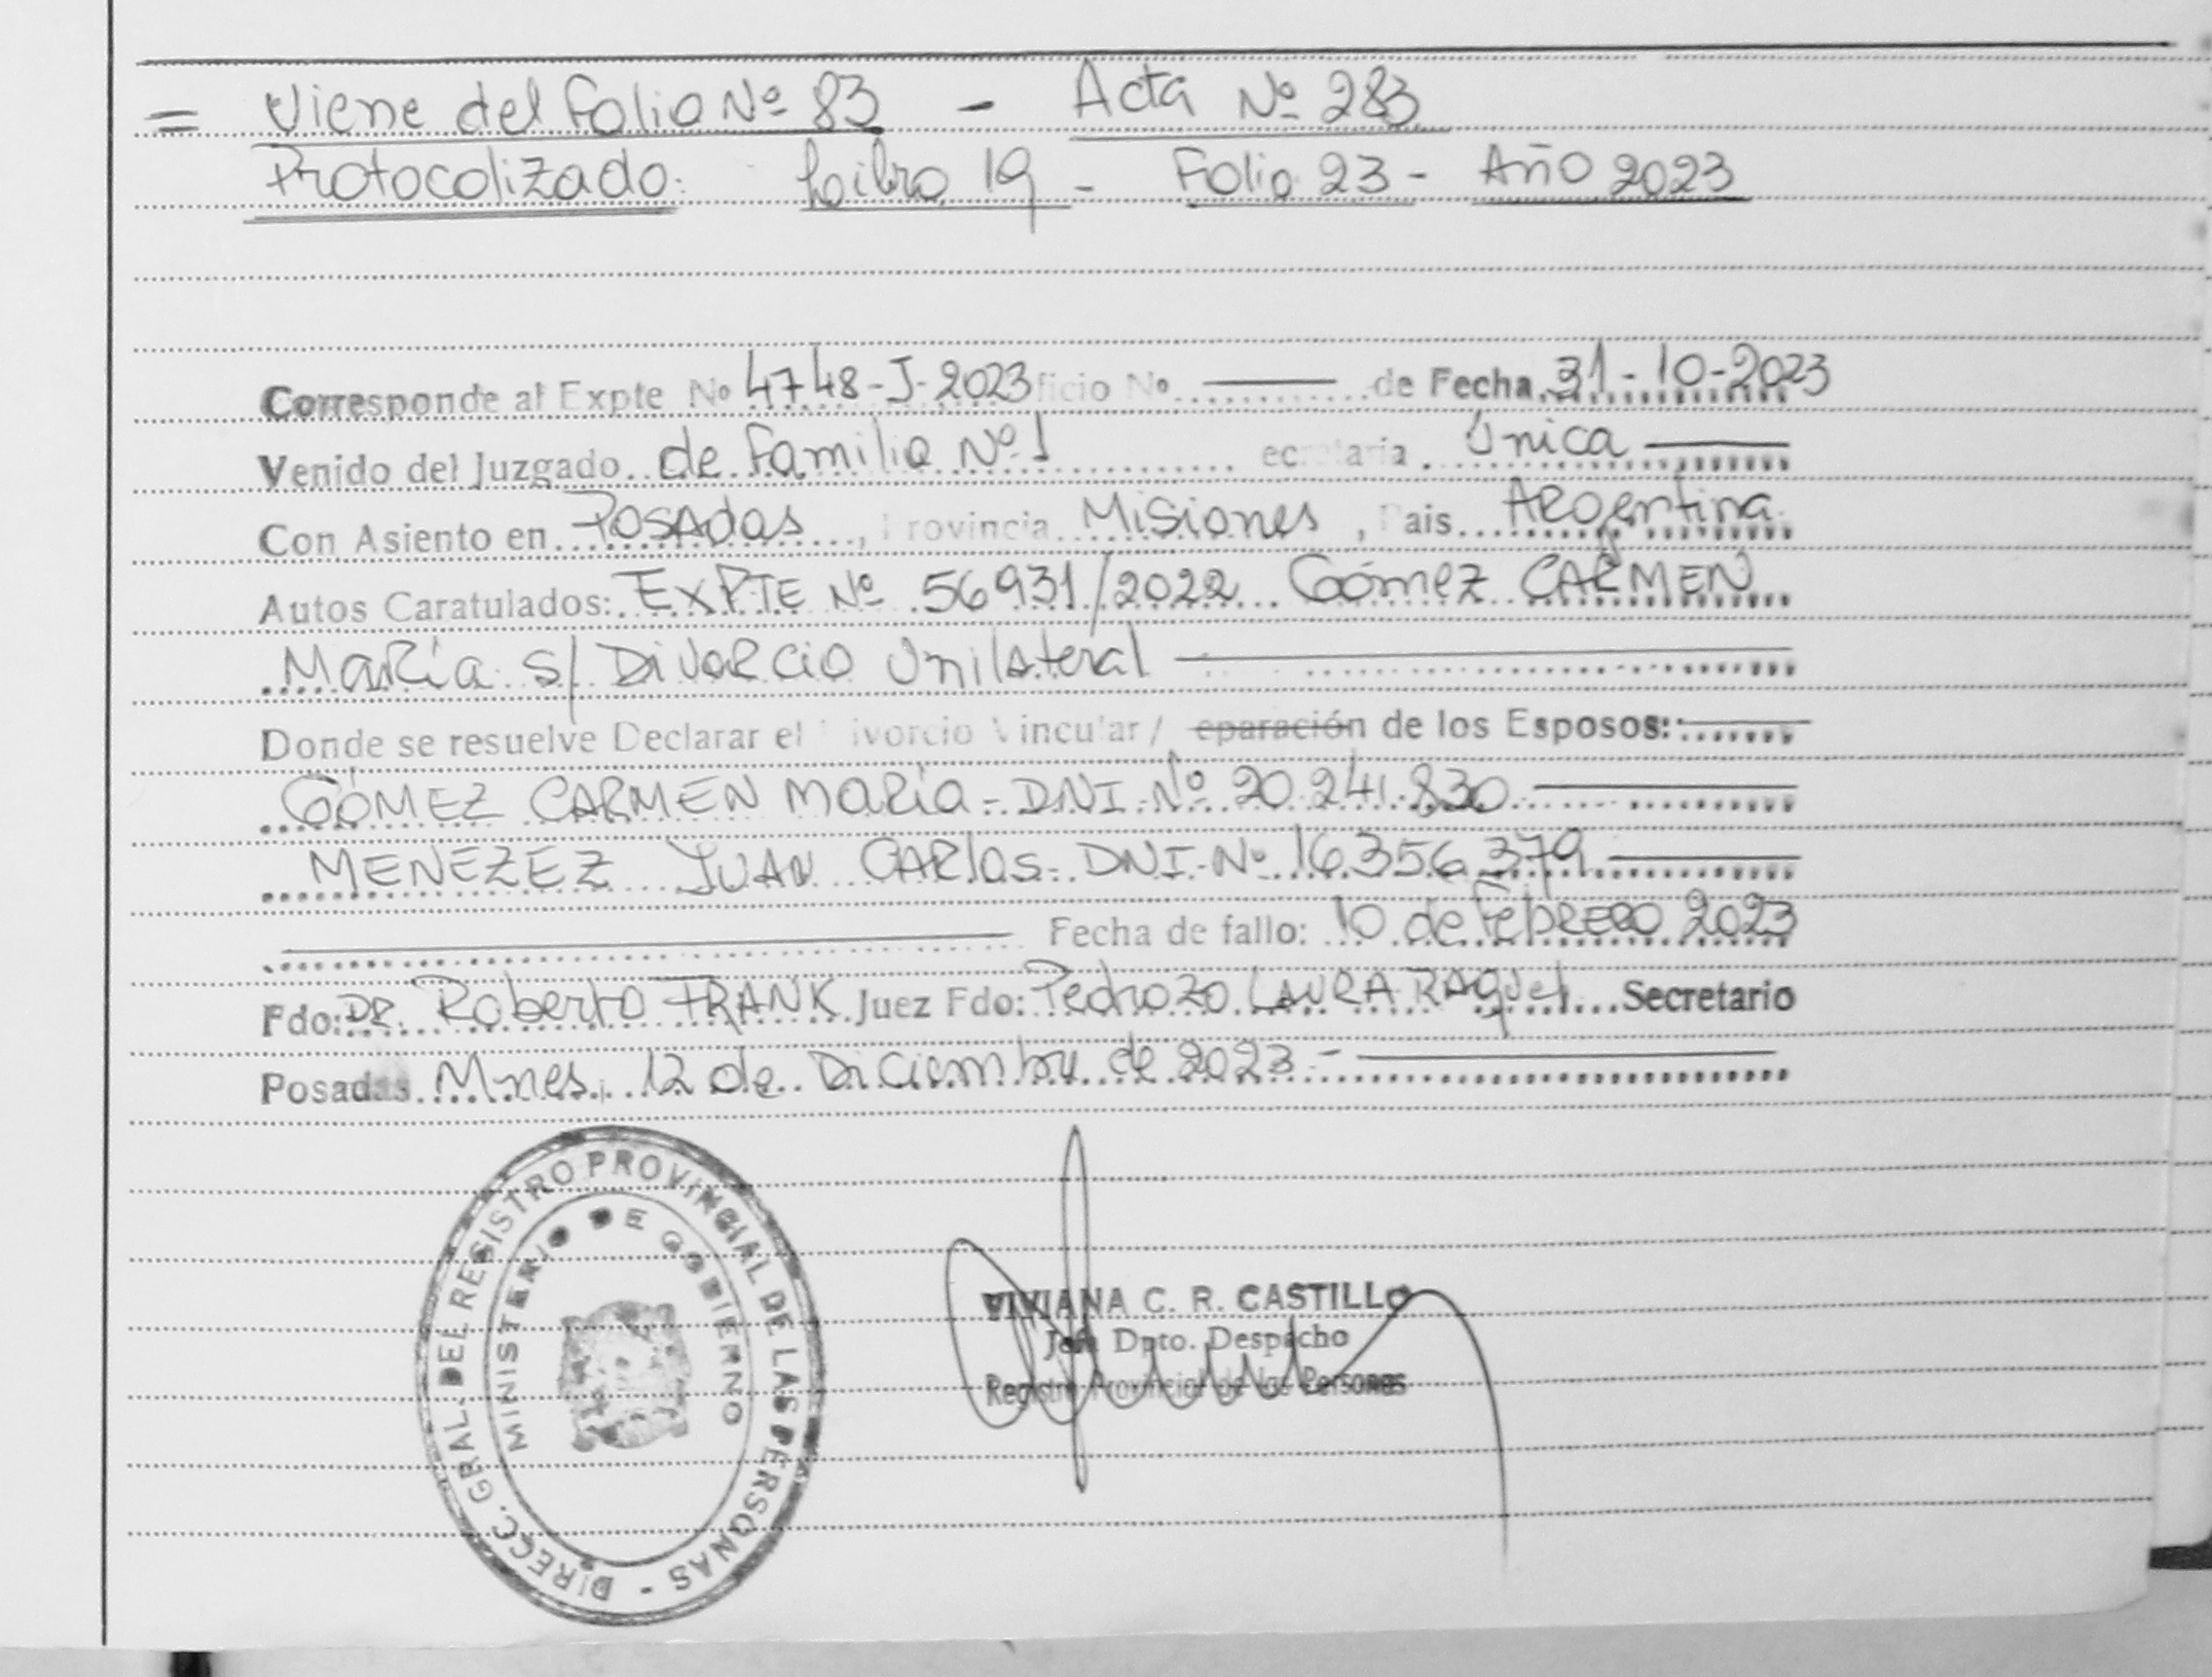 = Viene del Folio Nº 83 - Acta Nº 283
Protocolizado: Libro 19 - Folio 23 - Año 2023
Corresponde al Expte Nº 4748-J-2023 ficio Nº de Fecha 31-10-2023
Venido del Juzgado de Familia Nº 1 ecretaria Única
Con Asiento en Posadas, Provincia Misiones, Pais Argentina
Autos Caratulados: EXPTE Nº 56931/2022 Gómez CARMEN
María s/ Divorcio Unilateral
Donde se resuelve Declarar el ivorcio Vincular / eparación de los Esposos:
GÓMEZ CARMEN María - DNI Nº 20.241.830
MENEZEZ JUAN CARlos - DNI Nº 16.356.379
Fecha de fallo: 10 de Febrero 2023
Fdo: DR. Roberto FRANK Juez Fdo: Pedrozo LAURA RAquel Secretario
Posadas Mnes, 12 de Diciembre de 2023 -
DIRECC. GRAL. DEL REGISTRO PROVINCIAL DE LAS PERSONAS -
MINISTERIO DE GOBIERNO
VIVIANA C. R. CASTILLO
Jefa Dpto. Despacho
Registro Provincial de las Personas